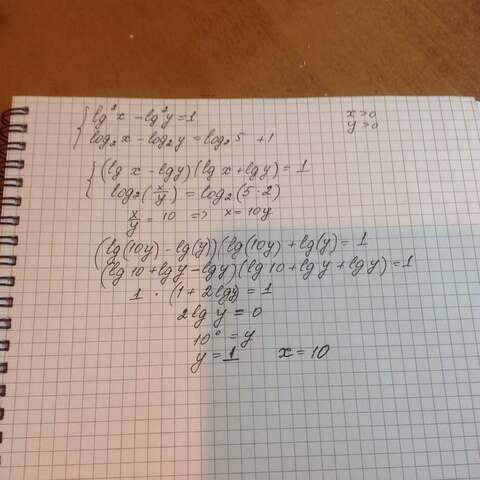 lg²x - lg²y = 1
x > 0
log₂x - log₂y = log₂5 + 1
y > 0
(lg x - lg y)(lg x + lg y) = 1
log₂(x/y) = log₂(5·2)
x/y = 10 => x = 10y
(lg(10y) - lg(y))(lg(10y) + lg(y) = 1
(lg 10 + lg y - lg y)(lg 10 + lg y + lg y) = 1
1 · (1 + 2lg y) = 1
2 lg y = 0
10⁰ = y
y = 1 x = 10